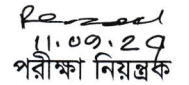 11.09.29
পরীক্ষা নিয়ন্ত্রক